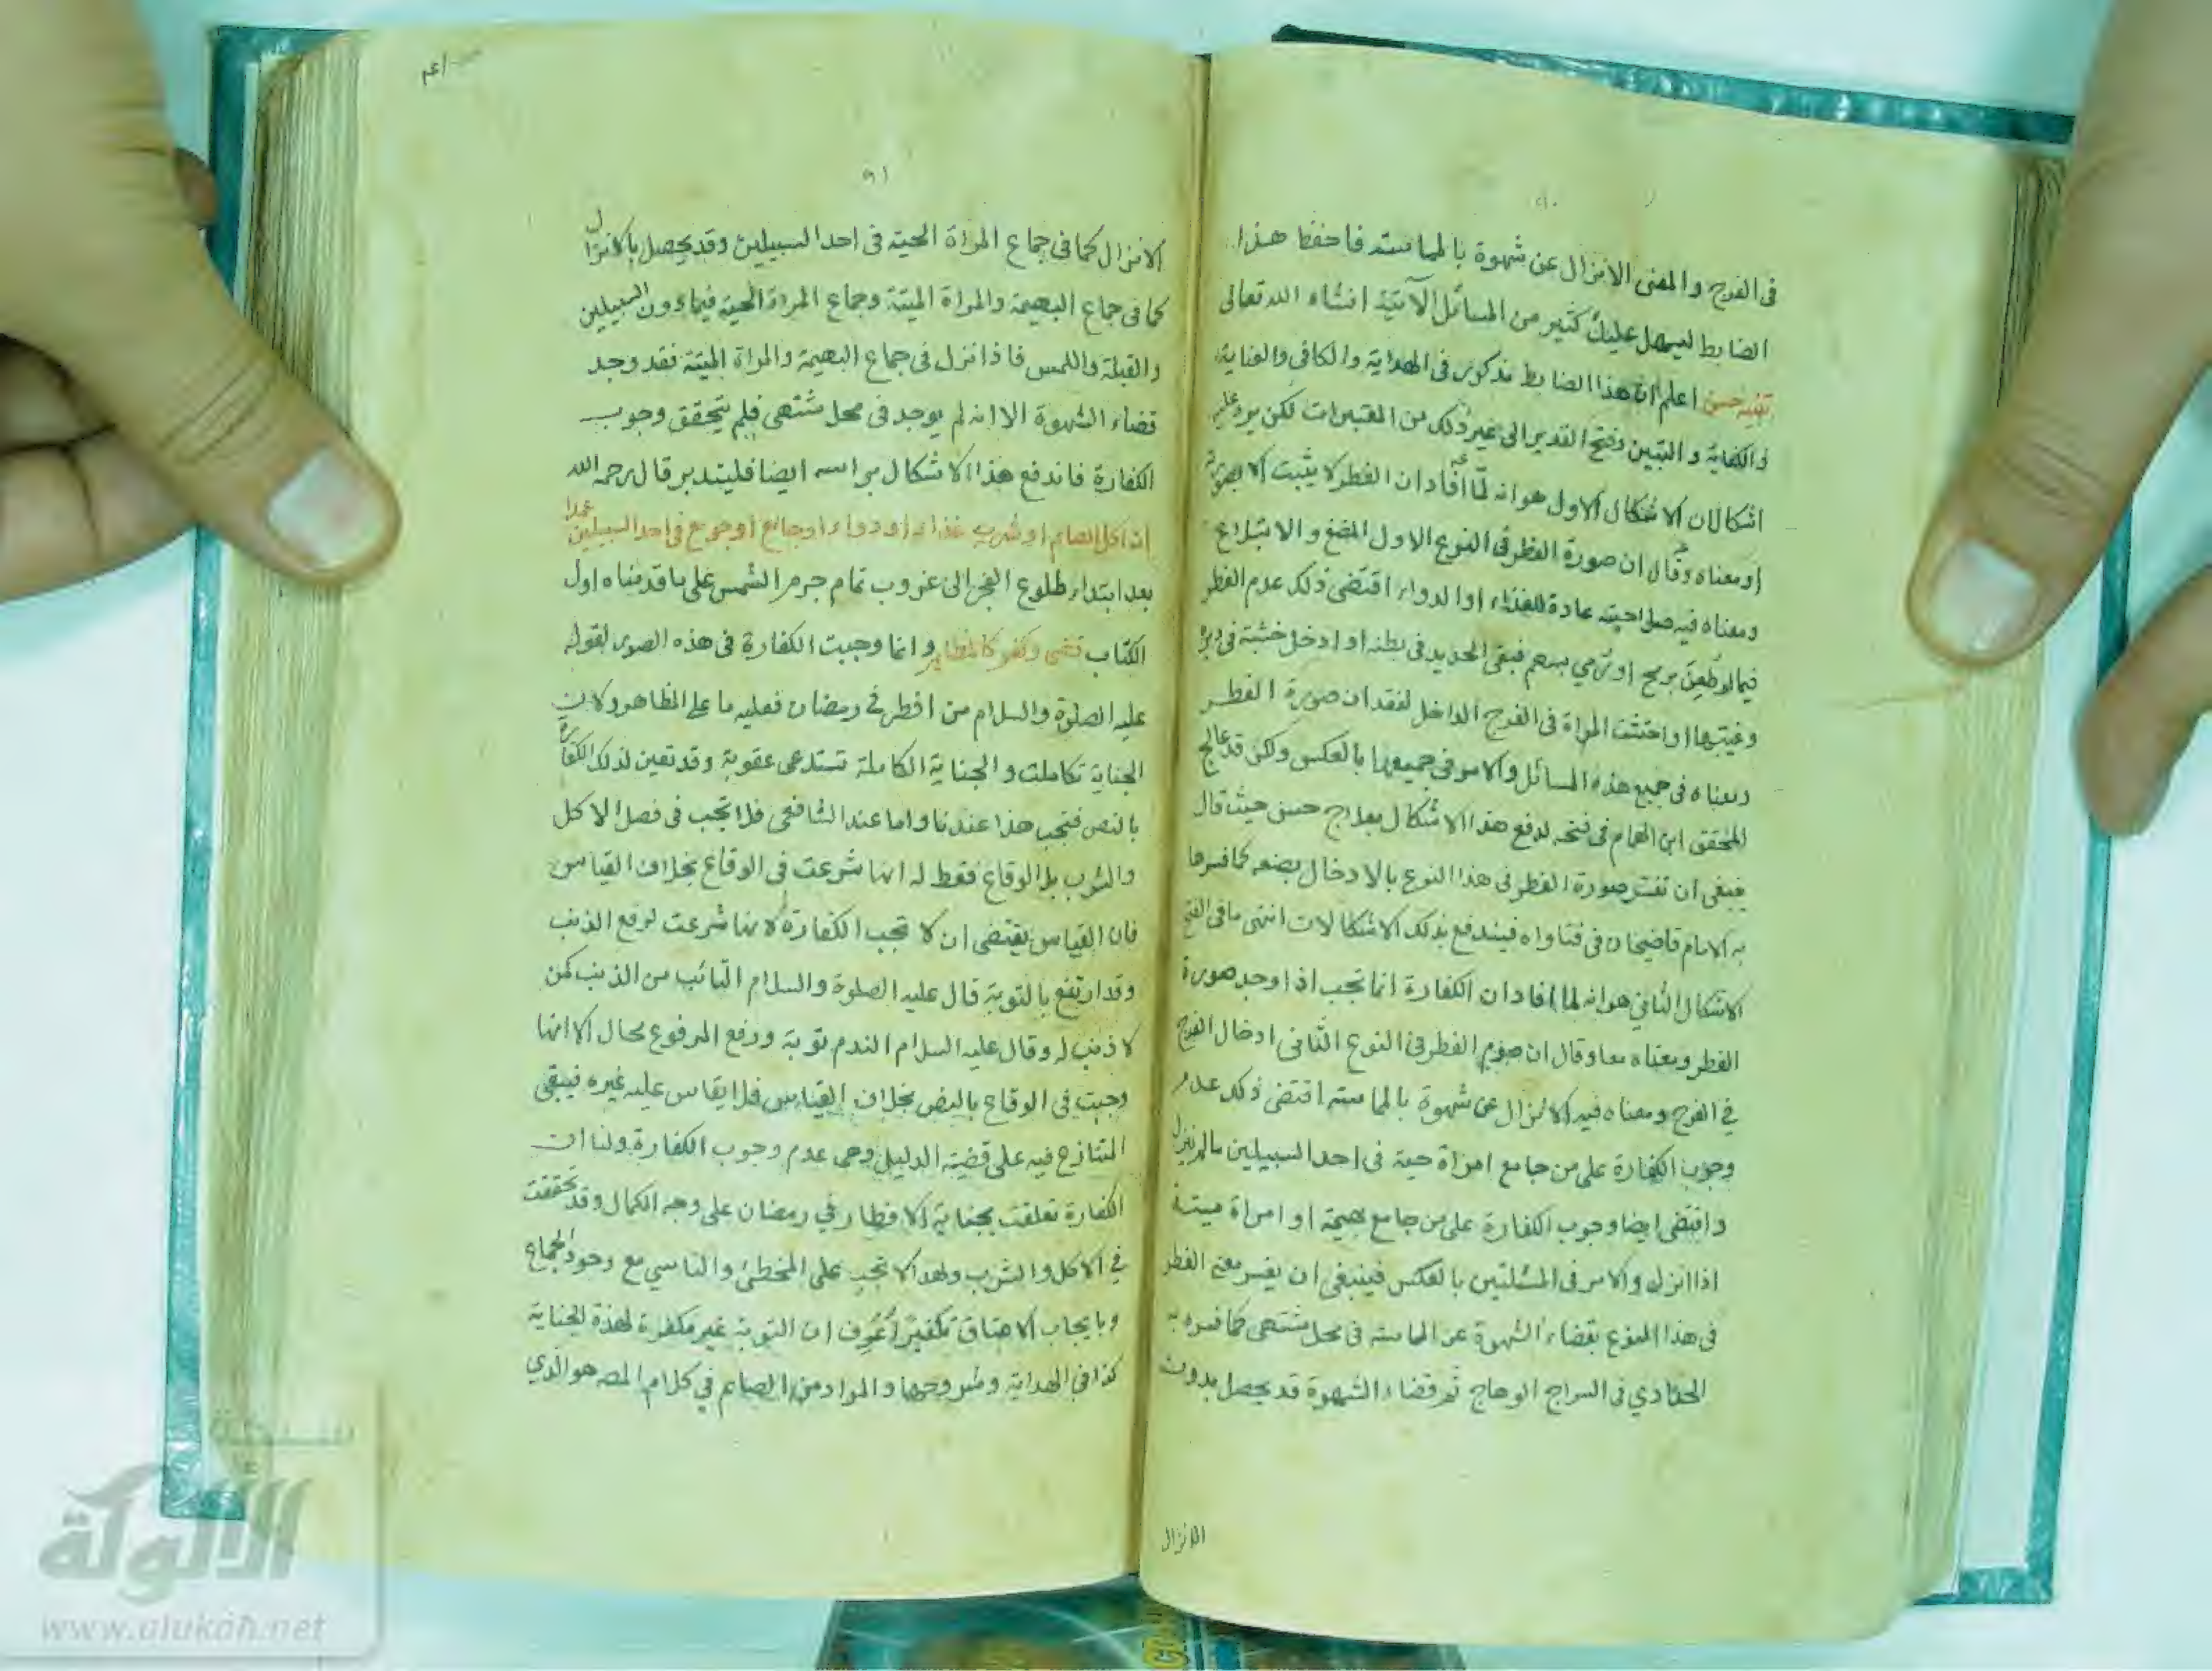 ٩٠
في الفرج والمعنى الانزال عن شهوة بالمماسة فاحفظ هذا
الضابط ليسهل عليك كثير من المسائل الآتية انشاء الله تعالى
تنبيه حسن اعلم ان هذا الضابط مذكور في الهداية والكافي والعناية
والكفاية والتبيين وفتح القدير الى غير ذلك من المعتبرات لكن يرد عليه
اشكالان الاشكال الاول هو انه لما افاد ان الفطر لا يثبت الا بصورته
او معناه وقال ان صورة الفطر في النوع الاول المضغ والابتلاع
ومعناه فيه صلاحيته عادة للغذاء او الدواء اقتضى ذلك عدم الفطر
فيما لو طعن برمح او رمي بسهم فبقي الحديد في بطنه او ادخل خشبة في دبره
وغيبها او احتشت المراة في الفرج الداخل لفقدان صورة الفطر
ومعناه في جميع هذه المسائل والامر في جميعها بالعكس ولكن قد عالج
المحقق ابن الهمام في فتحه لدفع هذا الاشكال بعلاج حسن حيث قال
ينبغي ان تفسر صورة الفطر في هذا النوع بالادخال بصنعه كما فسرها
به الامام قاضيخان في فتاواه فيندفع بذلك الاشكالات انتهى ما في الفتح
الاشكال الثاني هو انه لما افاد ان الكفارة انما تجب اذا وجد صورة
الفطر ومعناه معا وقال ان صورة الفطر في النوع الثاني ادخال الفرج
في الفرج ومعناه فيه الانزال عن شهوة بالمماسة اقتضى ذلك عدم
وجوب الكفارة على من جامع امراة حية في احد السبيلين ما لم ينزل
واقتضى ايضا وجوب الكفارة على من جامع بهيمة او امراة ميتة
اذا انزل والامر في المسئلتين بالعكس فينبغي ان يفسر معنى الفطر
في هذا النوع بقضاء الشهوة عن المماسة في محل مشتهى كما فسره به
الحدادي في السراج الوهاج ثم قضاء الشهوة قد يحصل بدون
الانزال
٩١
الانزال كما في جماع المراة الحية في احد السبيلين وقد يحصل بالانزال
كما في جماع البهيمة والمراة الميتة وجماع المراة الحية فيما دون السبيلين
والقبلة واللمس فاذا انزل في جماع البهيمة والمراة الميتة فقد وجد
قضاء الشهوة الا انه لم يوجد في محل مشتهى فلم يتحقق وجوب
الكفارة فاندفع هذا الاشكال براسه ايضا فليتدبر قال رحمه الله
ان اكل الصائم او شرب غذاء او دواء او جامع او جومع في احد السبيلين عمدا
بعد ابتداء طلوع الفجر الى غروب تمام جرم الشمس على ما قدمناه اول
الكتاب قضى وكفر كالمظاهر وانما وجبت الكفارة في هذه الصور لقوله
عليه الصلوة والسلام من افطر في رمضان فعليه ما على المظاهر ولان
الجناية تكاملت والجناية الكاملة تستدعى عقوبة وقد تعين لذلك الكفارة
بالنص فتجب هذا عندنا واما عند الشافعي فلا تجب في فصل الاكل
والشرب بل الوقاع فقط له انها شرعت في الوقاع بخلاف القياس
فان القياس يقتضى ان لا تجب الكفارة لانها شرعت لرفع الذنب
وقد ارتفع بالتوبة قال عليه الصلوة والسلام التائب من الذنب كمن
لا ذنب له وقال عليه السلام الندم توبة ورفع المرفوع محال الا انها
وجبت في الوقاع بالنص بخلاف القياس فلا يقاس عليه غيره فيبقى
المتنازع فيه على قضية الدليل وهي عدم وجوب الكفارة ولنا ان
الكفارة تعلقت بجناية الافطار في رمضان على وجه الكمال وقد تحققت
في الاكل والشرب ولهذا لا تجب على المخطئ والناسي مع وجود الجماع
وبايجاب الاعتاق تكفيرا عرف ان التوبة غير مكفرة لهذه الجناية
كذا في الهداية وشروحها والمراد من الصائم في كلام المصه هو الذي
شبكة
الألوكة
www.alukah.net